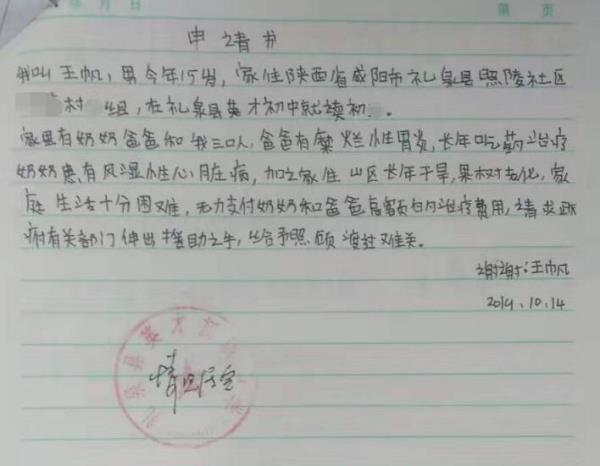 年 月 日
第 页
申请书
我叫王帆,男今年15岁,家住陕西省咸阳市礼泉县昭陵社区
村 组,在礼泉县英才初中就读初 。
家里有奶奶爸爸和我三口人,爸爸有糜烂性胃炎,长年吃药治疗
奶奶患有风湿性心脏病,加之家住山区长年干旱,果树老化,家
庭生活十分困难,无力支付奶奶和爸爸高额的治疗费用,请求政
府有关部门伸出援助之手,给予照顾渡过难关。
谢谢:王帆
2019.10.14
情况属实
礼泉县英才初